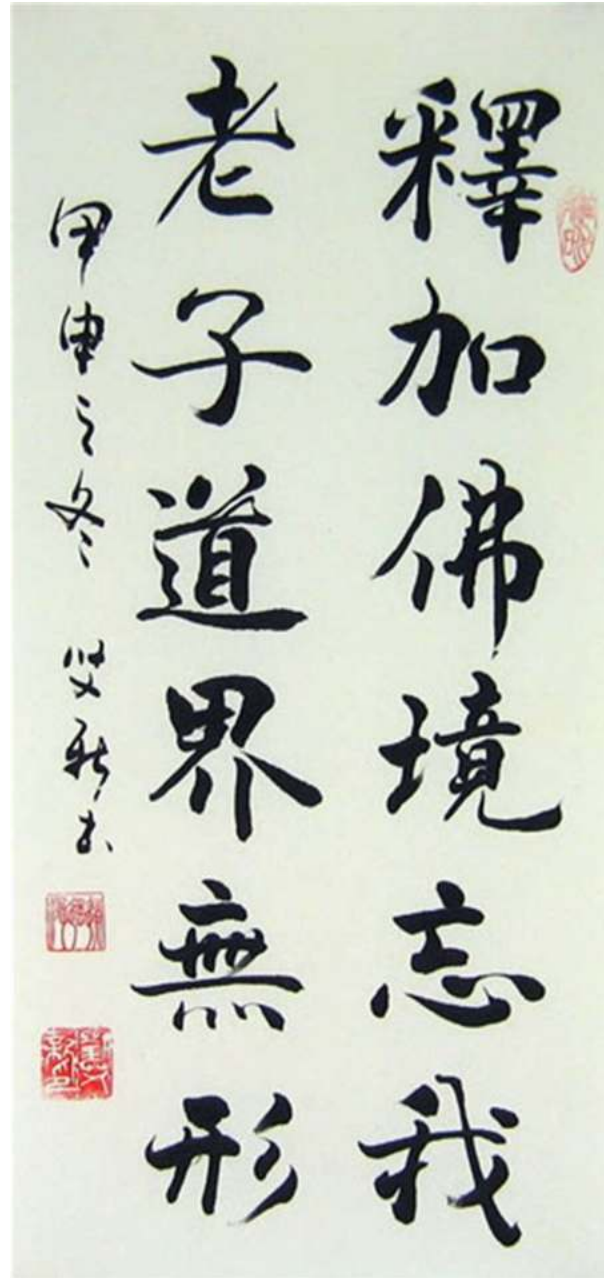 釋加佛境忘我
老子道界無形
甲申之冬 炆新书